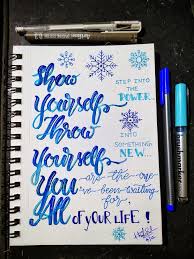 Show
STEP INTO
THE
POWER..
yourself
Throw
INTO
SOMETHING
NEW...
yourself
You
are the one
i've been waiting
for
All
of YOUR LIFE !